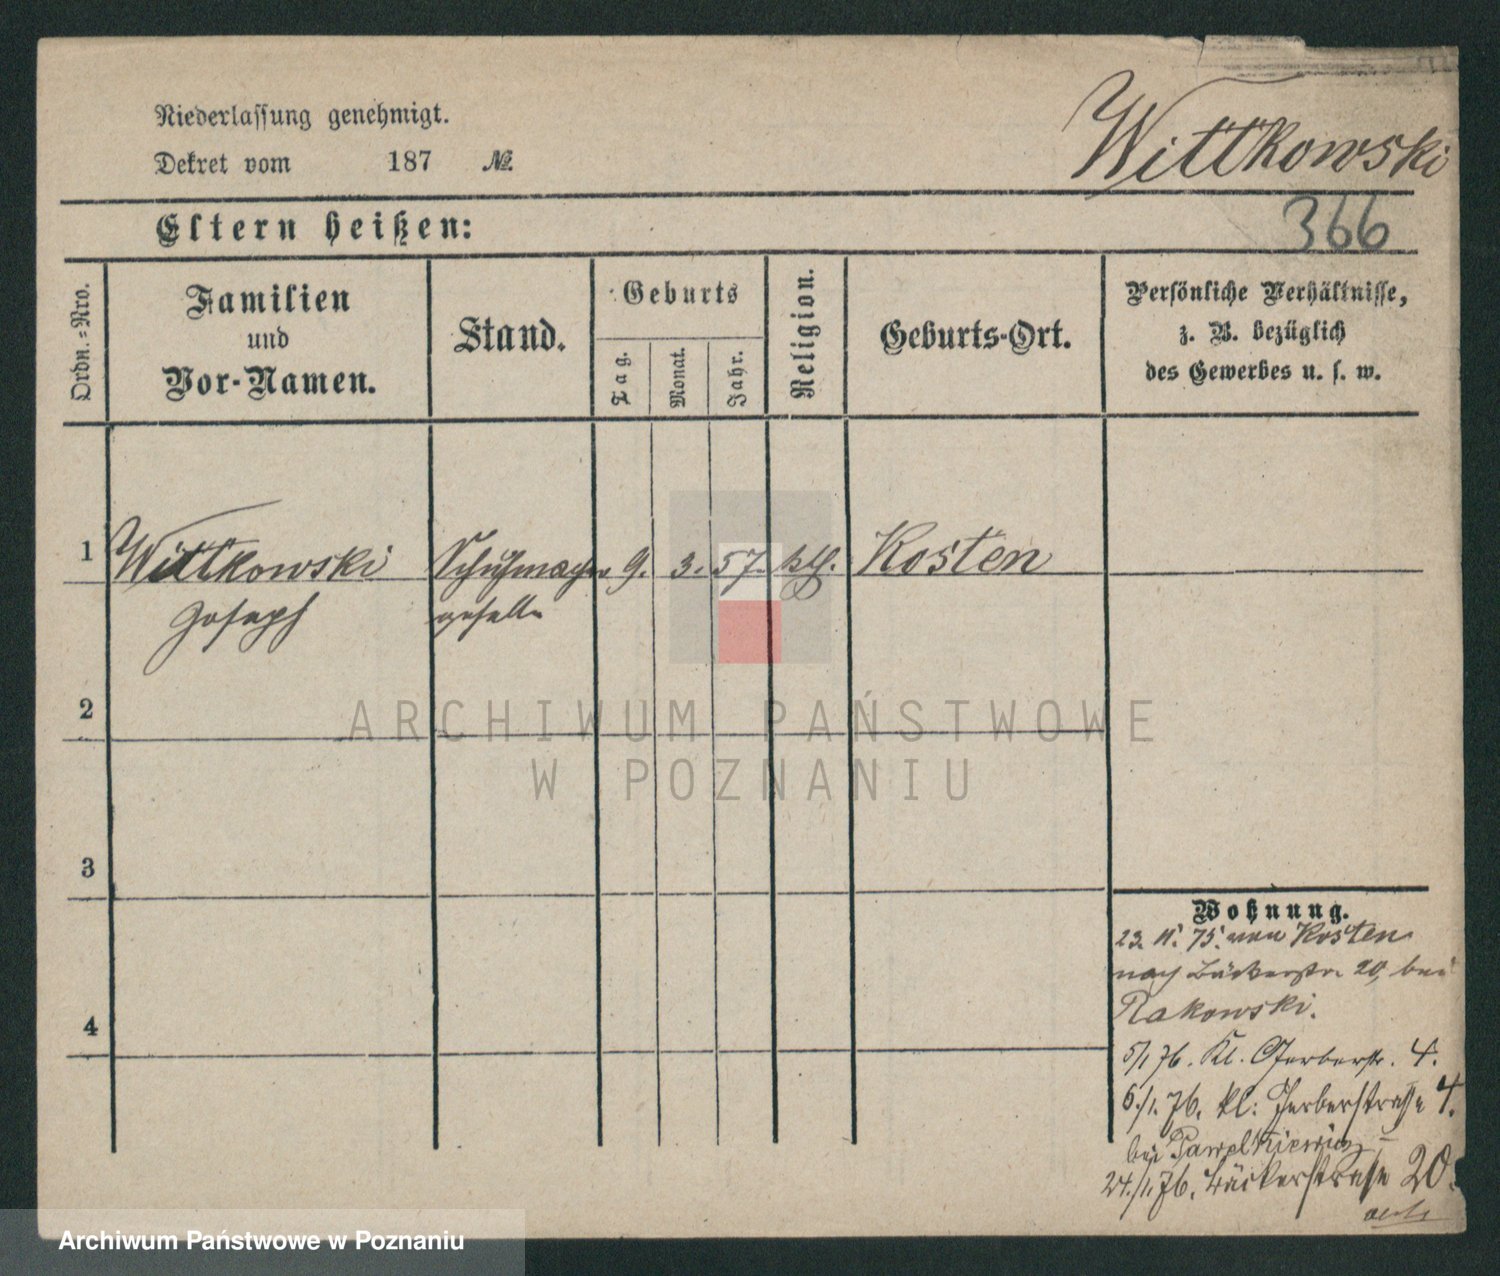 Niederlassung genehmigt.
Dekret vom 187 №
Wittkowski
366
Eltern heißen:
Ordn.=Nro.
Familien
und
Vor-Namen.
Stand.
Geburts
Tag.
Monat.
Jahr.
Religion.
Geburts-Ort.
Persönliche Verhältnisse,
z. B. bezüglich
des Gewerbes u. s. w.
1 Wittkowski Schuhmacher 9. 3. 57. kth. Kosten
Joseph geselle
2
3
4
Wohnung.
23. 11. 75. von Kosten
nach Bäckerstr. 20, bei
Rakowski.
5/1 76. Kl. Gerberstr. 4.
6./1. 76. kl: Gerberstrasse 4.
bei Pawelkiewicz
24./1. 76. Bäckerstrasse 20.
ARCHIWUM PAŃSTWOWE
W POZNANIU
Archiwum Państwowe w Poznaniu